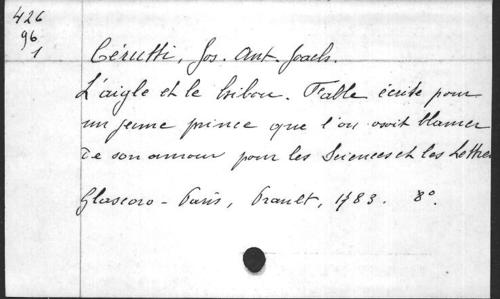 426
96
1
Cérutti, Jos. Ant. Joach.
L'aigle et le hibou. Fable écrite pour
un jeune prince que l'on osoit blamer
de son amour pour les Sciences et les Lettres
Glascow - Paris, Prault, 1783. 8°.